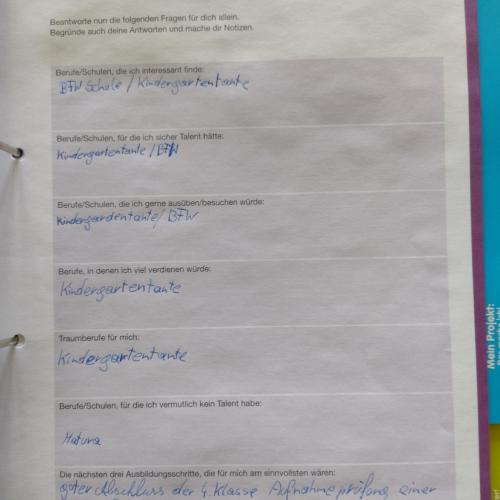 Beantworte nun die folgenden Fragen für dich allein.
Begründe auch deine Antworten und mache dir Notizen.
Berufe/Schulen, die ich interessant finde:
BFW Schule / Kindergartentante
Berufe/Schulen, für die ich sicher Talent hätte:
Kindergartentante / BFW
Berufe/Schulen, die ich gerne ausüben/besuchen würde:
Kindergardentante/ BFW
Berufe, in denen ich viel verdienen würde:
Kindergartentante
Traumberufe für mich:
Kindergartentante
Berufe/Schulen, für die ich vermutlich kein Talent habe:
Matura
Die nächsten drei Ausbildungsschritte, die für mich am sinnvollsten wären:
guter Abschluss der 4. Klasse Aufnahmeprüfung einer
Mein Projekt: